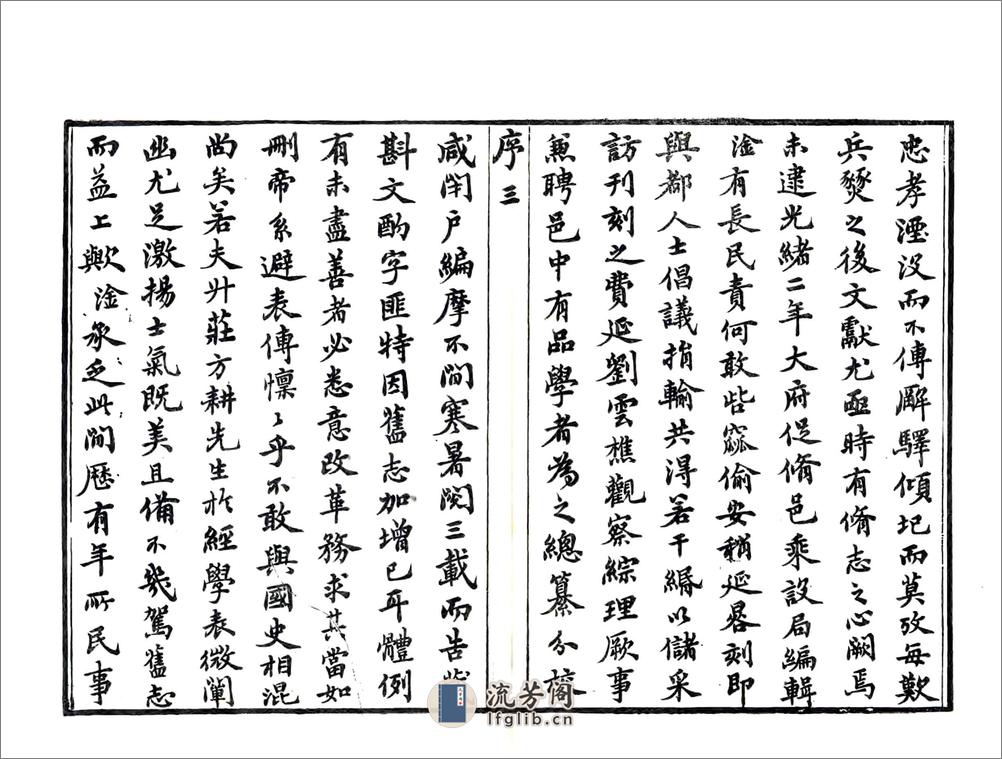 忠孝湮没而不傳廨驛傾圮而莫攷每歎
兵燹之後文獻尤亟時有脩志之心闕焉
未逮光緒二年大府促脩邑乘設局編輯
淦有長民責何敢呰窳偷安稍延晷刻即
與都人士倡議捐輸共得若干緡以儲采
訪刊刻之費延劉雲樵觀察綜理厥事
兼聘邑中有品學者為之總纂分校
序 三
咸閉户編摩不間寒暑閱三載而告
斟文酌字匪特因舊志加增已耳體例
有未盡善者必悉意改革務求其當如
刪帝系避表傳懍〻乎不敢與國史相混
尚矣若夫廾莊方耕先生於經學表微闡
幽尤足激揚士氣既美且備不幾駕舊志
而益上歟淦承乏此間歷有年所民事
流芳阁
lfglib.cn